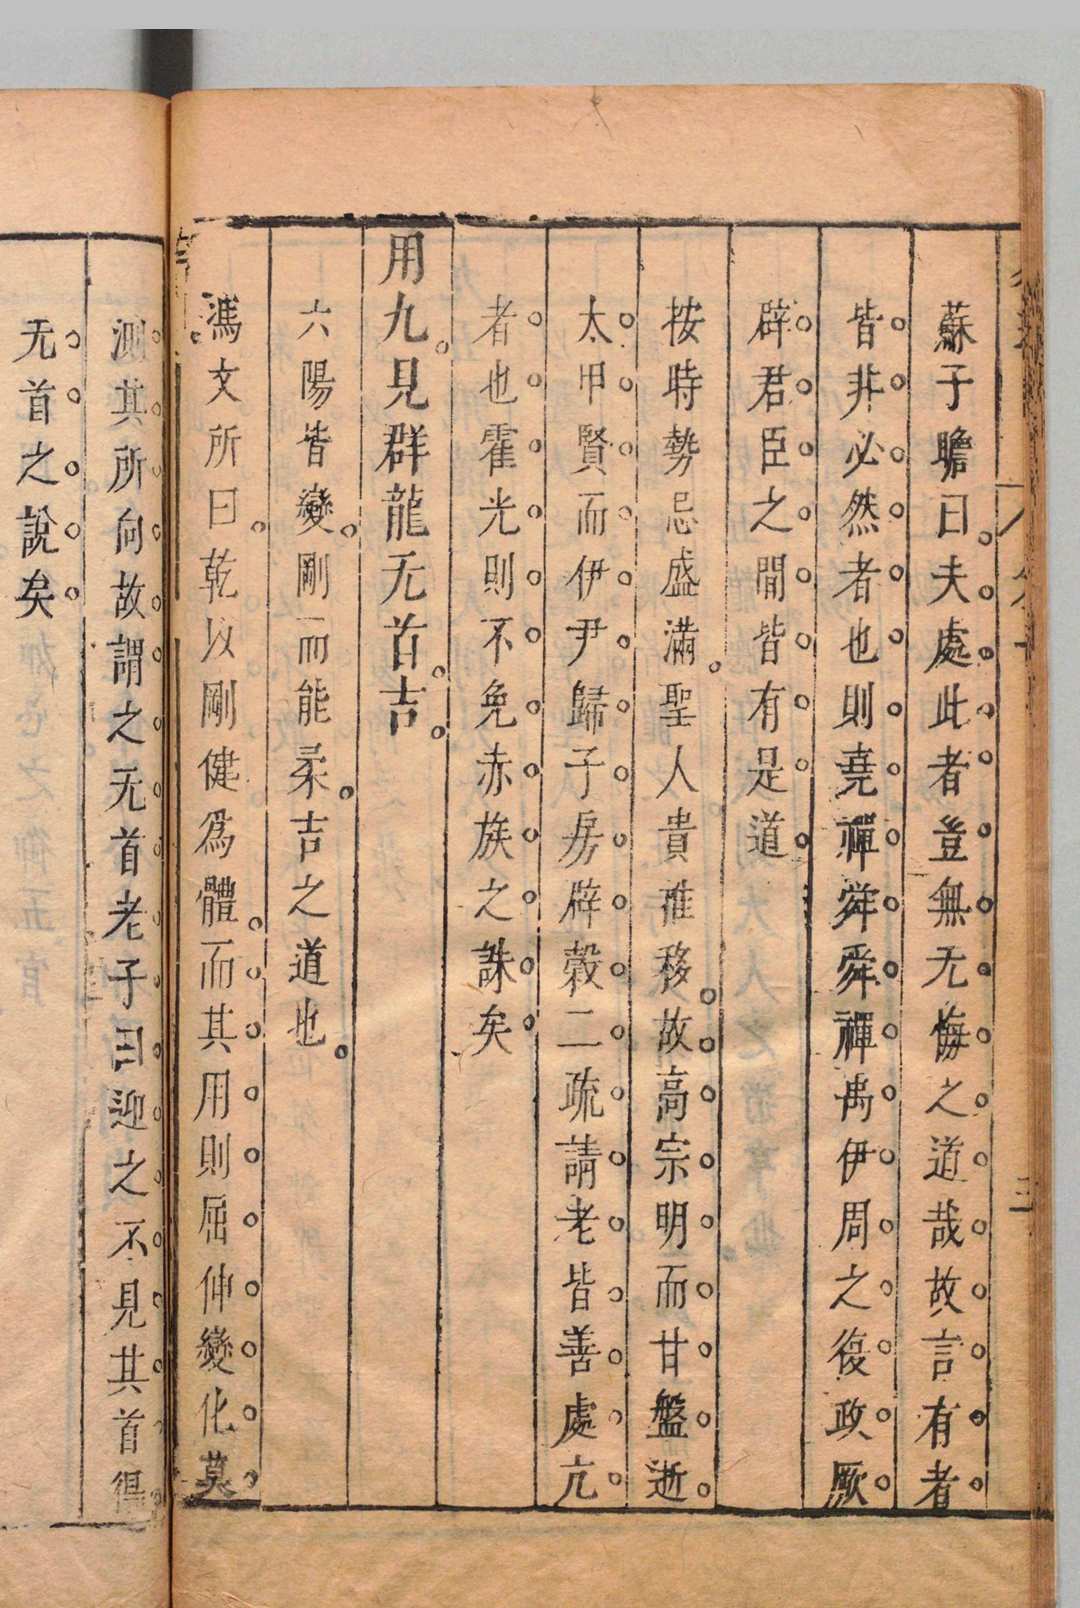 蘇子瞻曰夫處此者豈無无悔之道哉故言有者
皆非必然者也則堯禪舜舜禪禹伊周之復政厥
辟君臣之閒皆有是道
按時勢忌盛滿聖人貴推移故高宗明而甘盤逝
太甲賢而伊尹歸子房辟穀二疏請老皆善處亢
者也霍光則不免赤族之誅矣
用九見群龍无首吉
六陽皆變剛而能柔吉之道也
馮文所曰乾以剛健爲體而其用則屈伸變化莫
測其所向故謂之无首老子曰迎之不見其首得
无首之說矣